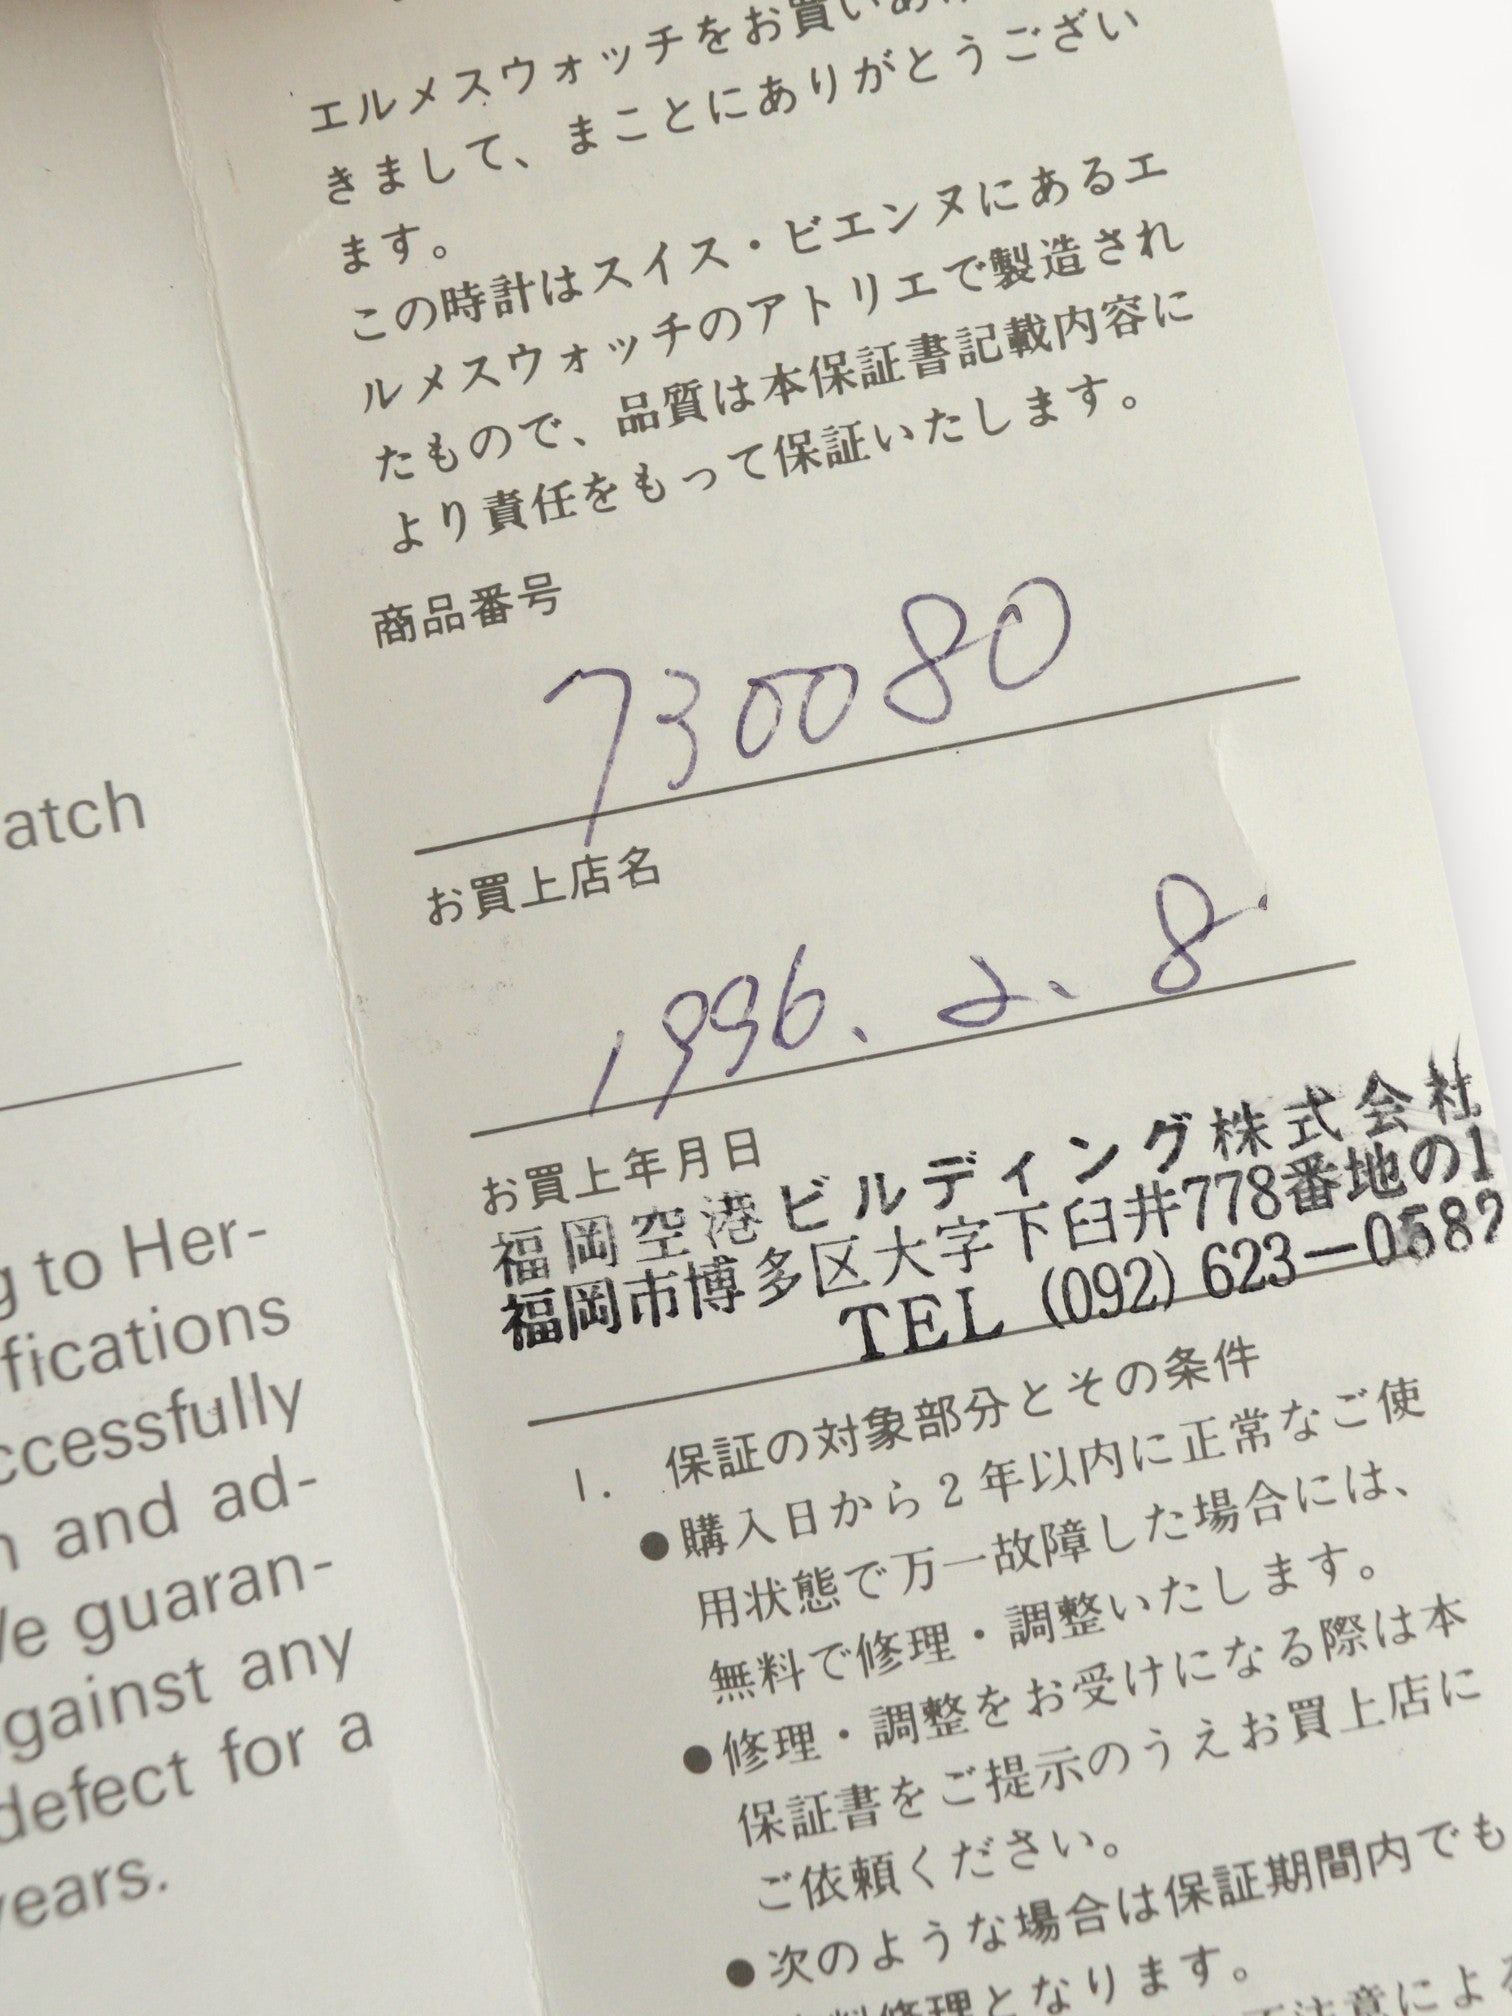 atch
g to Her-
fications
ccessfully
n and ad-
We guaran-
against any
defect for a
years.
エルメスウォッチをお買いあ
きまして、まことにありがとうござい
ます。
この時計はスイス・ビエンヌにあるエ
ルメスウォッチのアトリエで製造され
たもので、品質は本保証書記載内容に
より責任をもって保証いたします。
商品番号
730080
お買上店名
1996.2.8.
お買上年月日
福岡空港ビルディング株式会社
福岡市博多区大字下臼井778番地の1
TEL (092) 623-0587
1. 保証の対象部分とその条件
●購入日から2年以内に正常なご使
用状態で万一故障した場合には、
無料で修理・調整いたします。
●修理・調整をお受けになる際は本
保証書をご提示のうえお買上店に
ご依頼ください。
●次のような場合は保証期間内でも
料修理となります。
不注意による